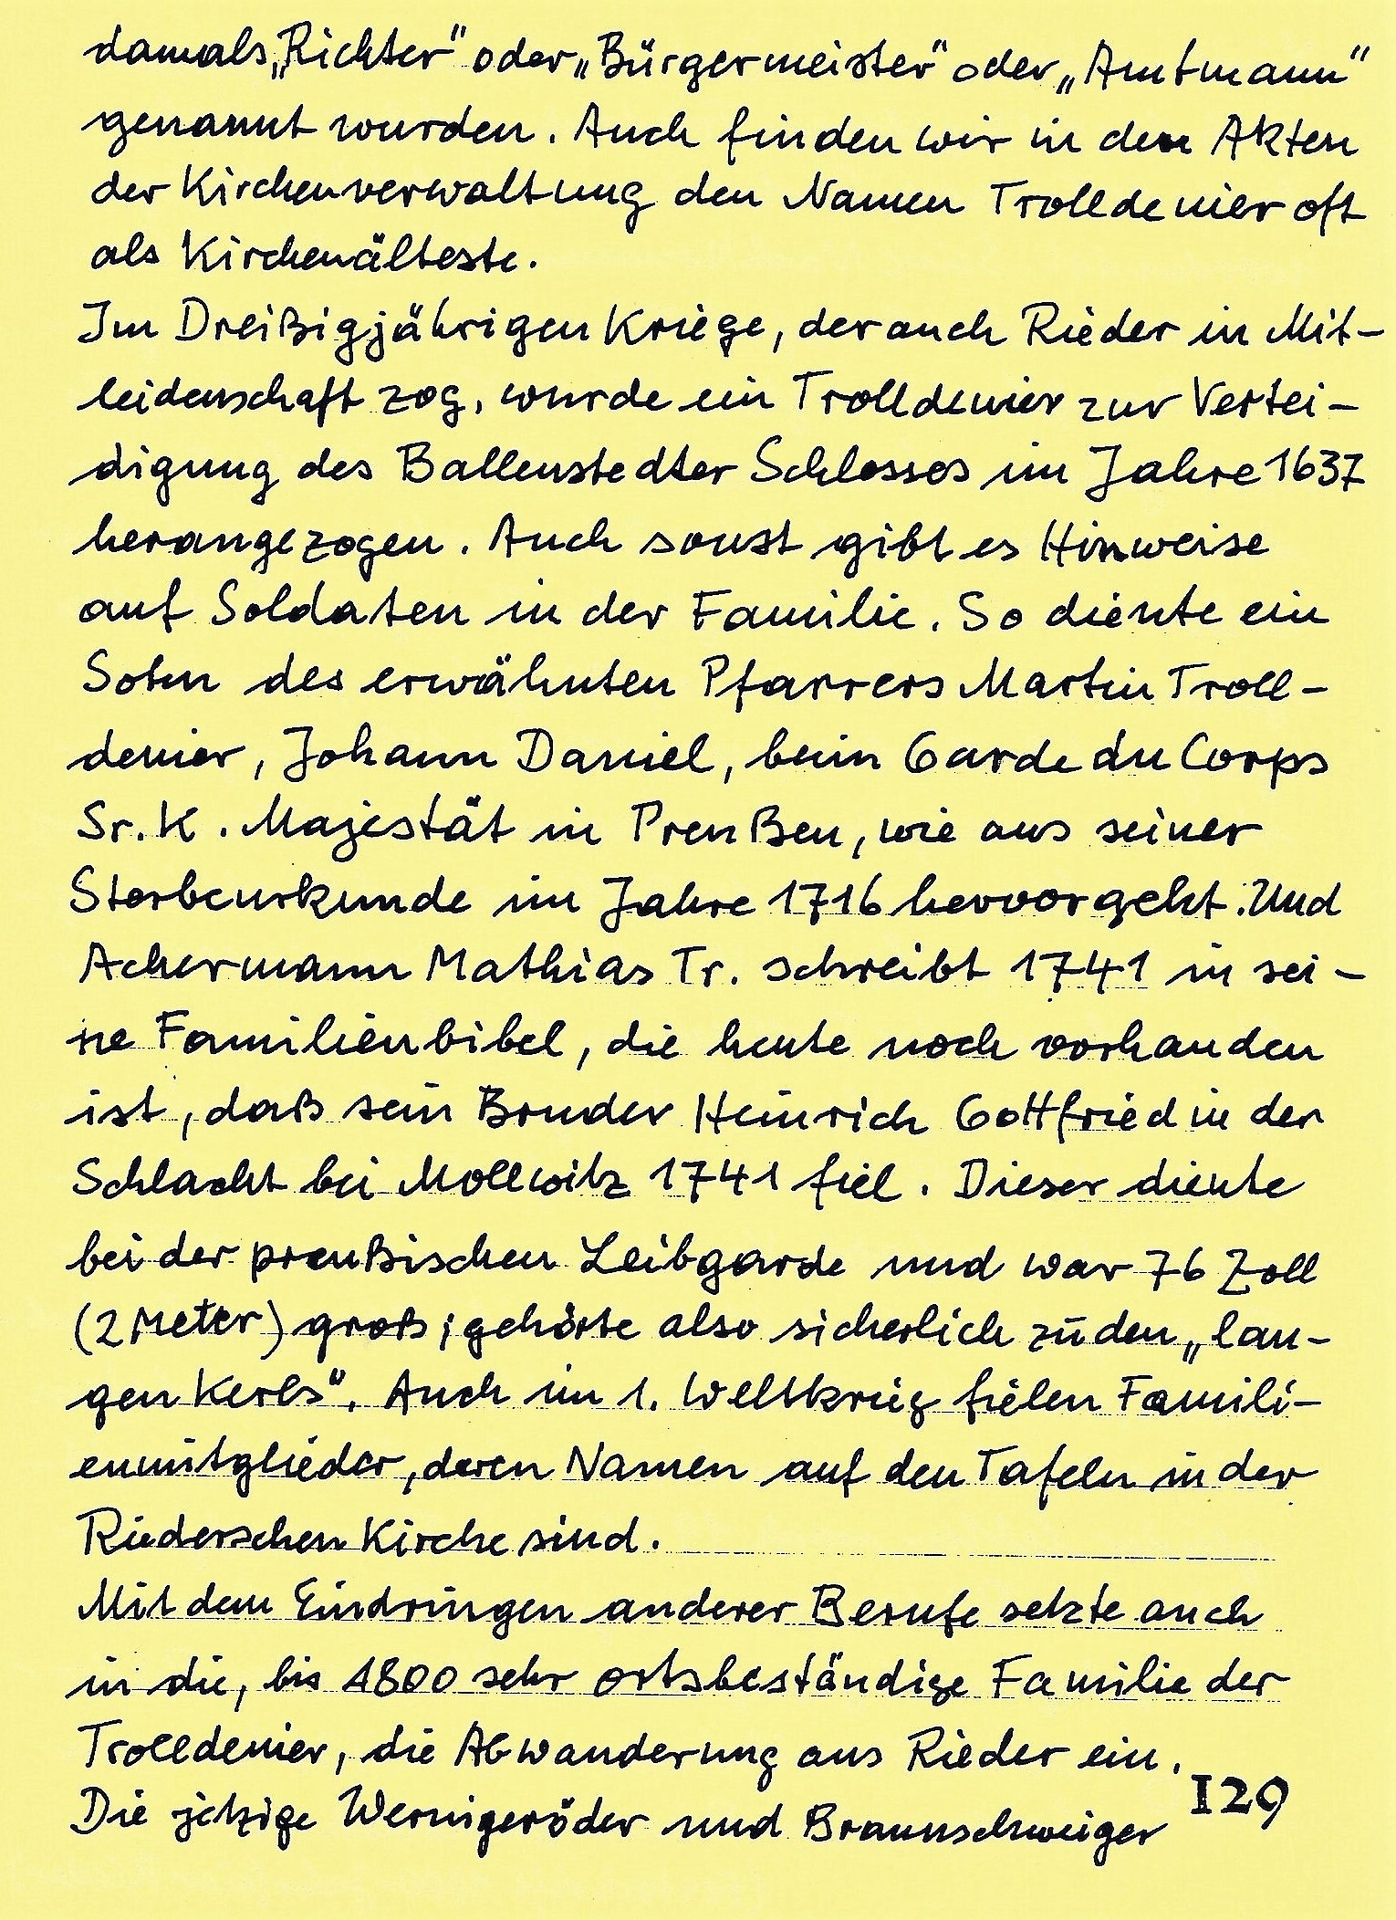 damals „Richter" oder „Bürgermeister" oder „Amtmann"
genannt wurden. Auch finden wir in den Akten
der Kirchenverwaltung den Namen Trolldenier oft
als Kirchenälteste.
Im Dreißigjährigen Kriege, der auch Rieder in Mit-
leidenschaft zog, wurde ein Trolldenier zur Vertei-
digung des Ballenstedter Schlosses im Jahre 1637
herangezogen. Auch sonst gibt es Hinweise
auf Soldaten in der Familie. So diente ein
Sohn des erwähnten Pfarrers Martin Troll-
denier, Johann Daniel, beim Garde du Corps
Sr. K. Majestät in Preußen, wie aus seiner
Sterbeurkunde im Jahre 1716 hervorgeht. Und
Ackermann Mathias Tr. schreibt 1741 in sei-
ne Familienbibel, die heute noch vorhanden
ist, daß sein Bruder Heinrich Gottfried in der
Schlacht bei Mollwitz 1741 fiel. Dieser diente
bei der preußischen Leibgarde und war 76 Zoll
(2 Meter) groß; gehörte also sicherlich zu den „lan-
gen Kerls". Auch im 1. Weltkrieg fielen Famili-
enmitglieder, deren Namen auf den Tafeln in der
Riederschen Kirche sind.
Mit dem Eindringen anderer Berufe setzte auch
in die, bis 1800 sehr ortsbeständige Familie der
Trolldenier, die Abwanderung aus Rieder ein.
Die jetzige Wernigeröder und Braunschweiger
129